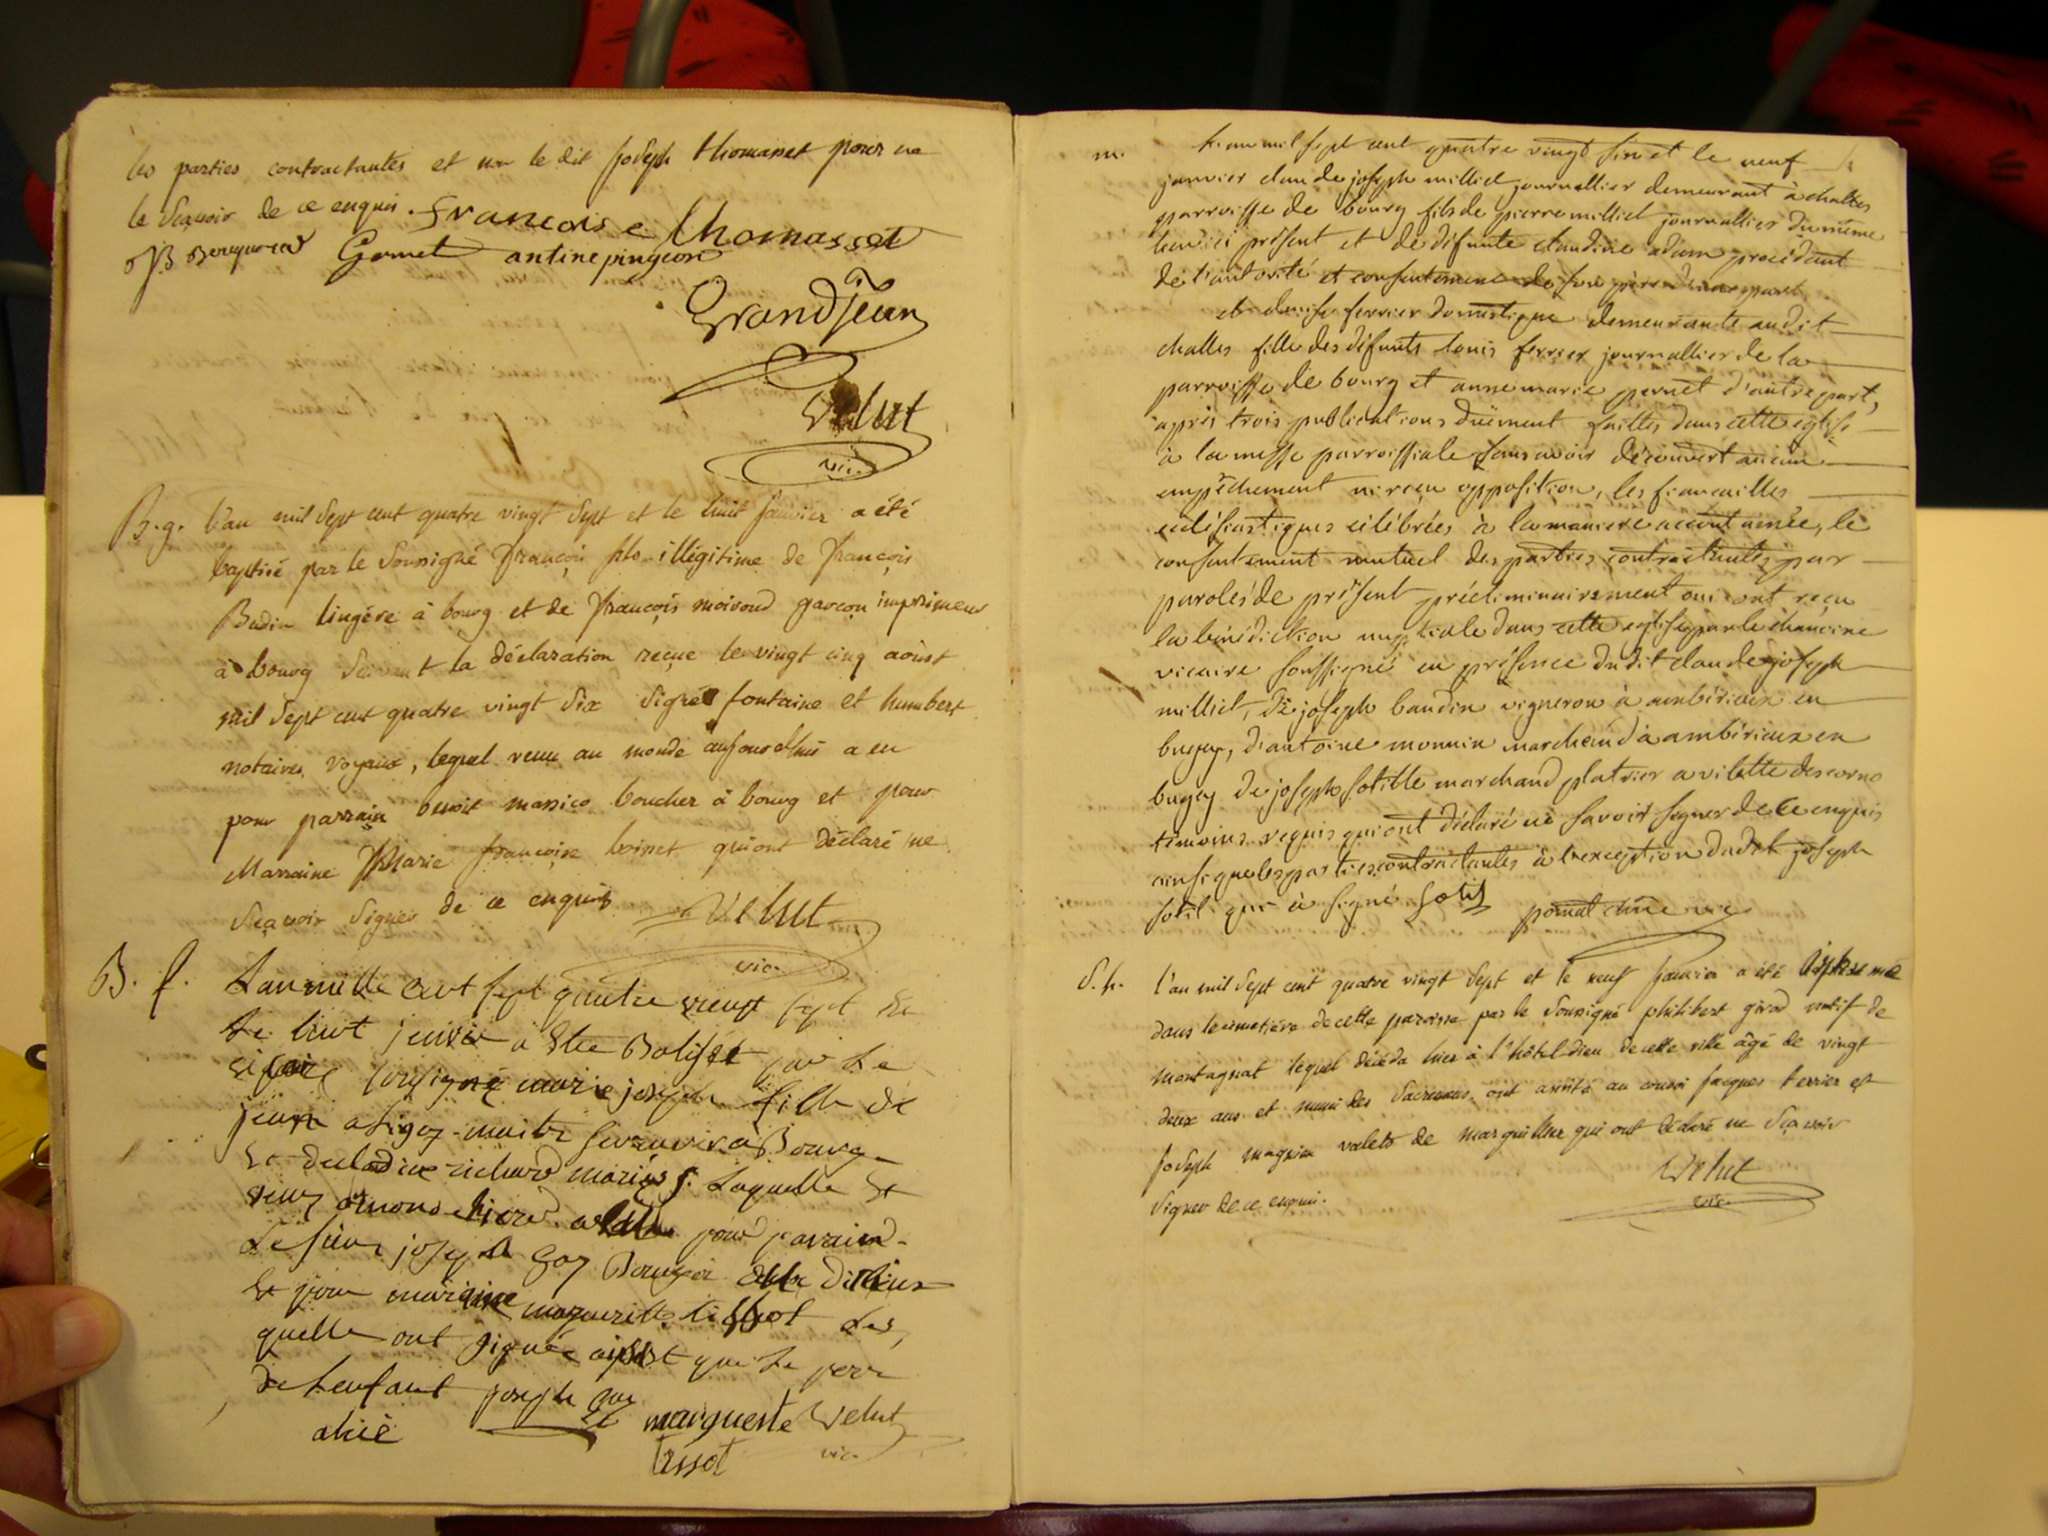 les parties contractantes et non le dit joseph thomasset pour ne
le sçavoir de ce enquis. Francoise thomasset
Gomet antine pingeon
Grandjean
Velut
vic.
B. g. l'an mil sept cent quatre vingt sept et le huit janvier a été
baptisé par le soussigné françois fils illégitime de françoise
Budin lingére à bourg et de françois moiroud garçon imprimeur
à bourg suivant la déclaration reçue le vingt cinq aoust
mil sept cent quatre vingt six signé fontaine et humbert
notaires royaux, lequel venu au monde aujourd'hui a eu
pour parrain benoit massico boucher à bourg et pour
Marraine Marie françoise loiset qui ont déclaré ne
sçavoir signer de ce enquis Velut
vic.
B. f. Lan mille cent sept quatre vengt sept et
le huit janvier a ete Batisee par le
vicaire sousigné marie joseph fille de
jean maitre serrurier a Bourg
et de richard mariés. Laquelle et
venu omonde hier pour paraien
le sieur joseph goy
et pour maraine margueritte tissot Les,
quelle ont signée ainsi que le pere
de Lenfant joseph goy
marguerite Velut
tissot vic.
m. L'an mil sept cent quatre vingt sept et le neuf
janvier claude joseph milliet journallier demeurant à challes
parroisse de bourg fils de pierre milliet journallier du même
lieu ici présent et de défunte claudine adam procédant
de l'autorité et consentement de son père d'une part
et denise ferrier domestique demeurante audit
challes fille des défunts louis ferrier journallier de la
parroisse de bourg et anne marie pernet d'autre part,
après trois publications duëment faittes dans cette église
à la messe parroissiale sans avoir découvert aucun
empêchement ni reçu opposition, les fiancailles
ecclésiastiques célébrées à la maniere accoutumée, le
consentement mutuel des parties contractantes par
paroles de présent préliminairement oui ont reçu
la bénédiction nuptiale dans cette église par le chanoine
vicaire soussigné en présence dudit claude joseph
milliet, de joseph baudin vigneron à ambérieux en
bugey, d'antoine monnin marchand à ambérieux en
bugey de joseph sotille marchand platrier a vilette
témoins requis qui ont déclaré ne savoir signer de ce enquis
ainsi que les parties contractantes à l'exception dudit joseph
sotil qui à signé Sotil
S. h. l'an mil sept cent quatre vingt sept et le neuf janvier a été inhumé
dans le cimetiére de cette paroisse par le soussigné philibert girod natif de
montagnat lequel décéda hier à l'hôtel dieu de cette ville âgé de vingt
deux ans et muni des sacremens. ont assisté au convoi jacques terrier et
joseph magnien valets de marguillier qui ont déclaré ne sçavoir
signer de ce enquis. Velut
vic.